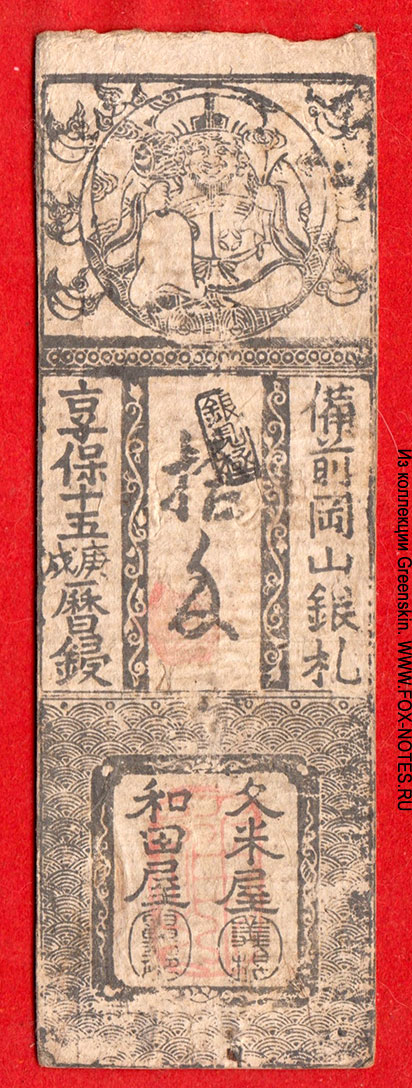 備前岡山銀札
拾匁
享保十五庚戌曆鋟
久米屋
和田屋
Из коллекции Greenskin. WWW.FOX-NOTES.RU